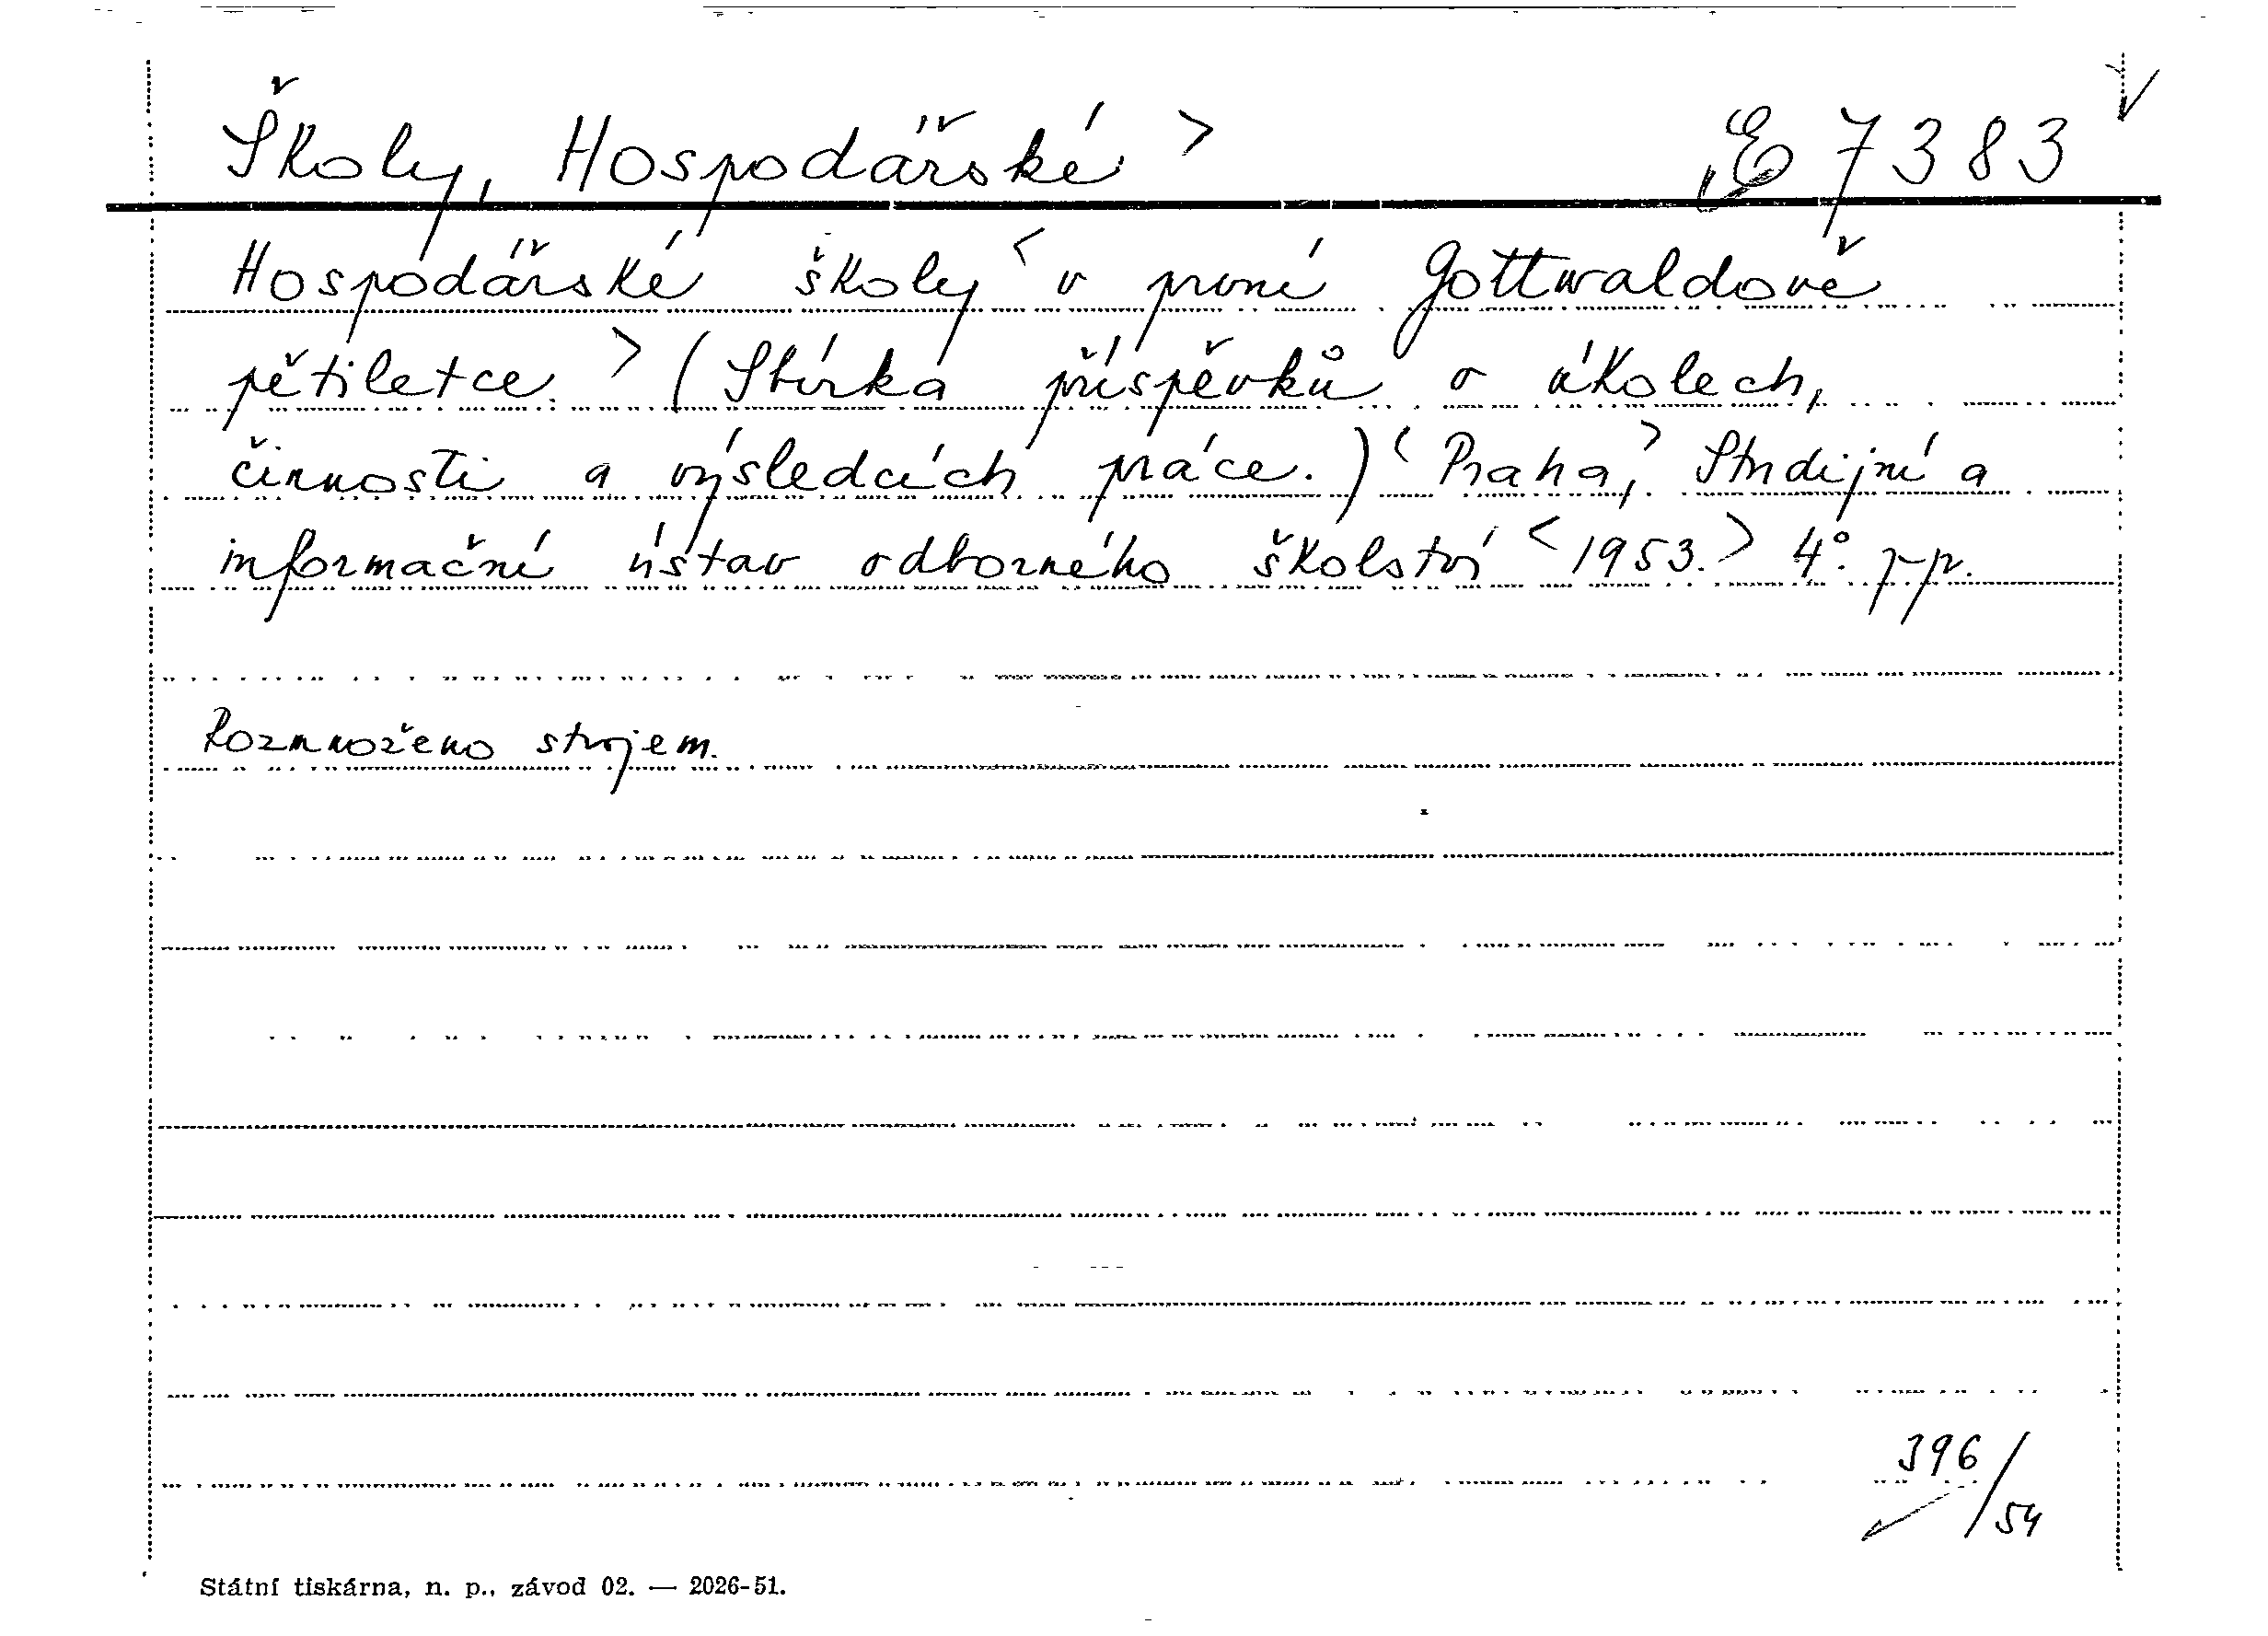 Školy, Hospodářské > E 7383
Hospodářské školy < v první Gottwaldově
pětiletce. > (Sbírka příspěvků o úkolech,
činnosti a výsledcích práce.) < Praha, > Studijní a
informační ústav odborného školství < 1953. > 4°. pp.
Rozmnoženo strojem.
396/54
Státní tiskárna, n. p., závod 02. — 2026-51.